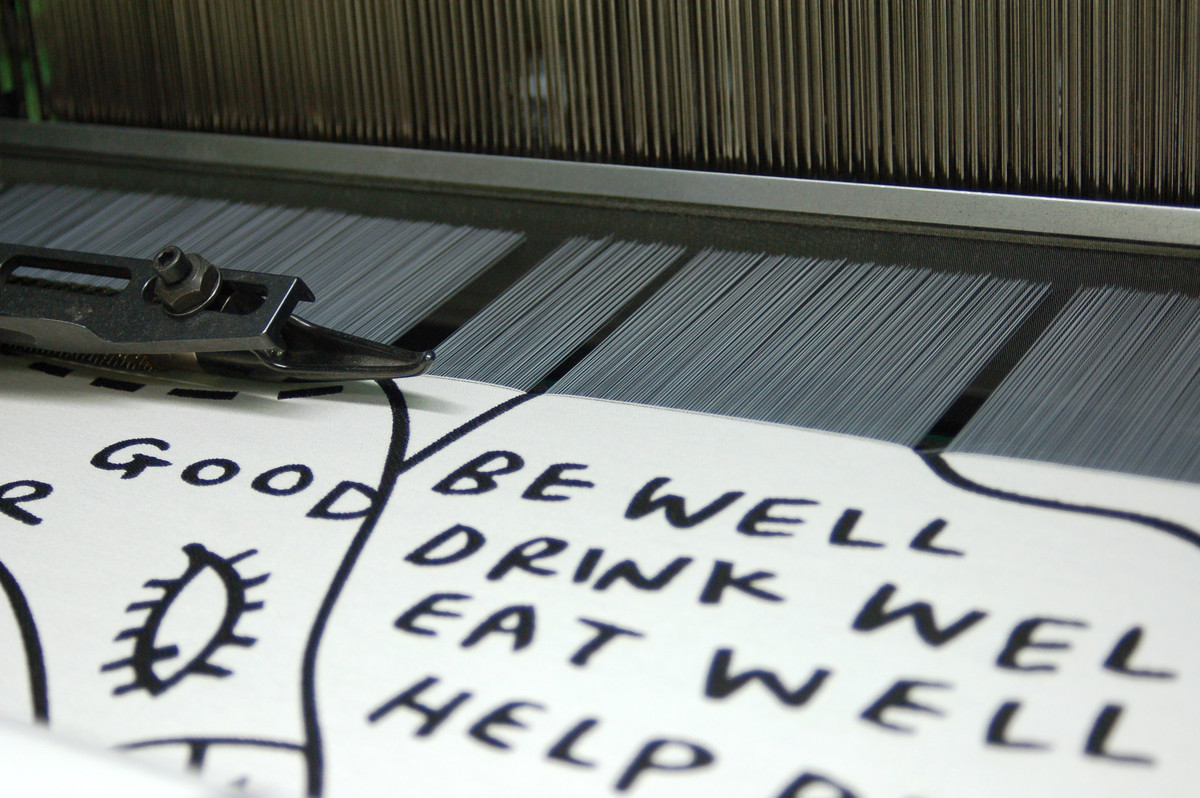 GOOD
BE WELL
DRINK WEL
EAT WELL
HELP